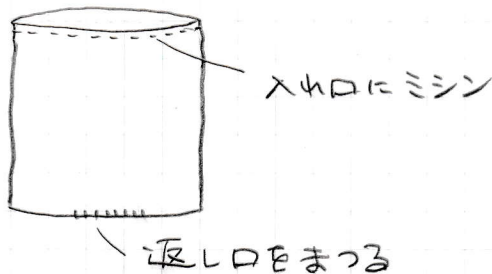 入れ口にミシン
返し口をまつる